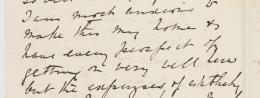 I am most anxious to
make this my home &
have every prospect of
getting on very well here
but the expenses of